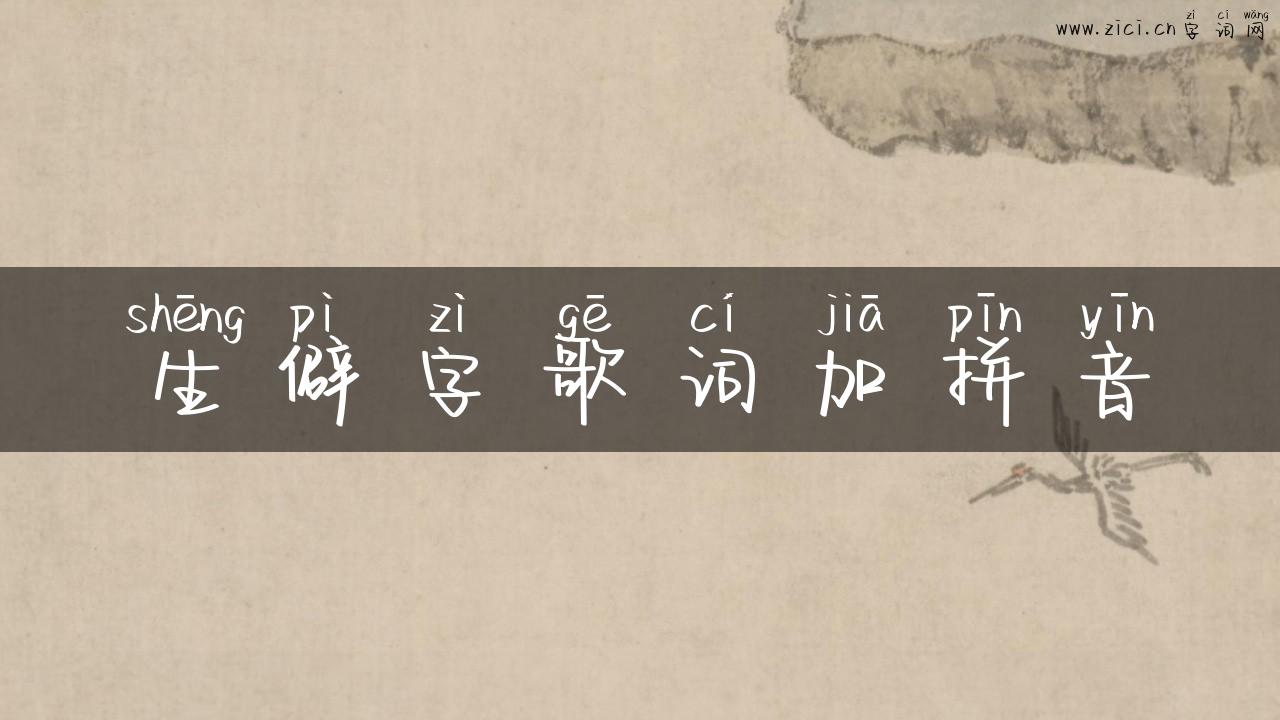 zì cí wǎng
www.zici.cn字词网
shēng pì zì gē cí jiā pīn yīn
生僻字歌词加拼音